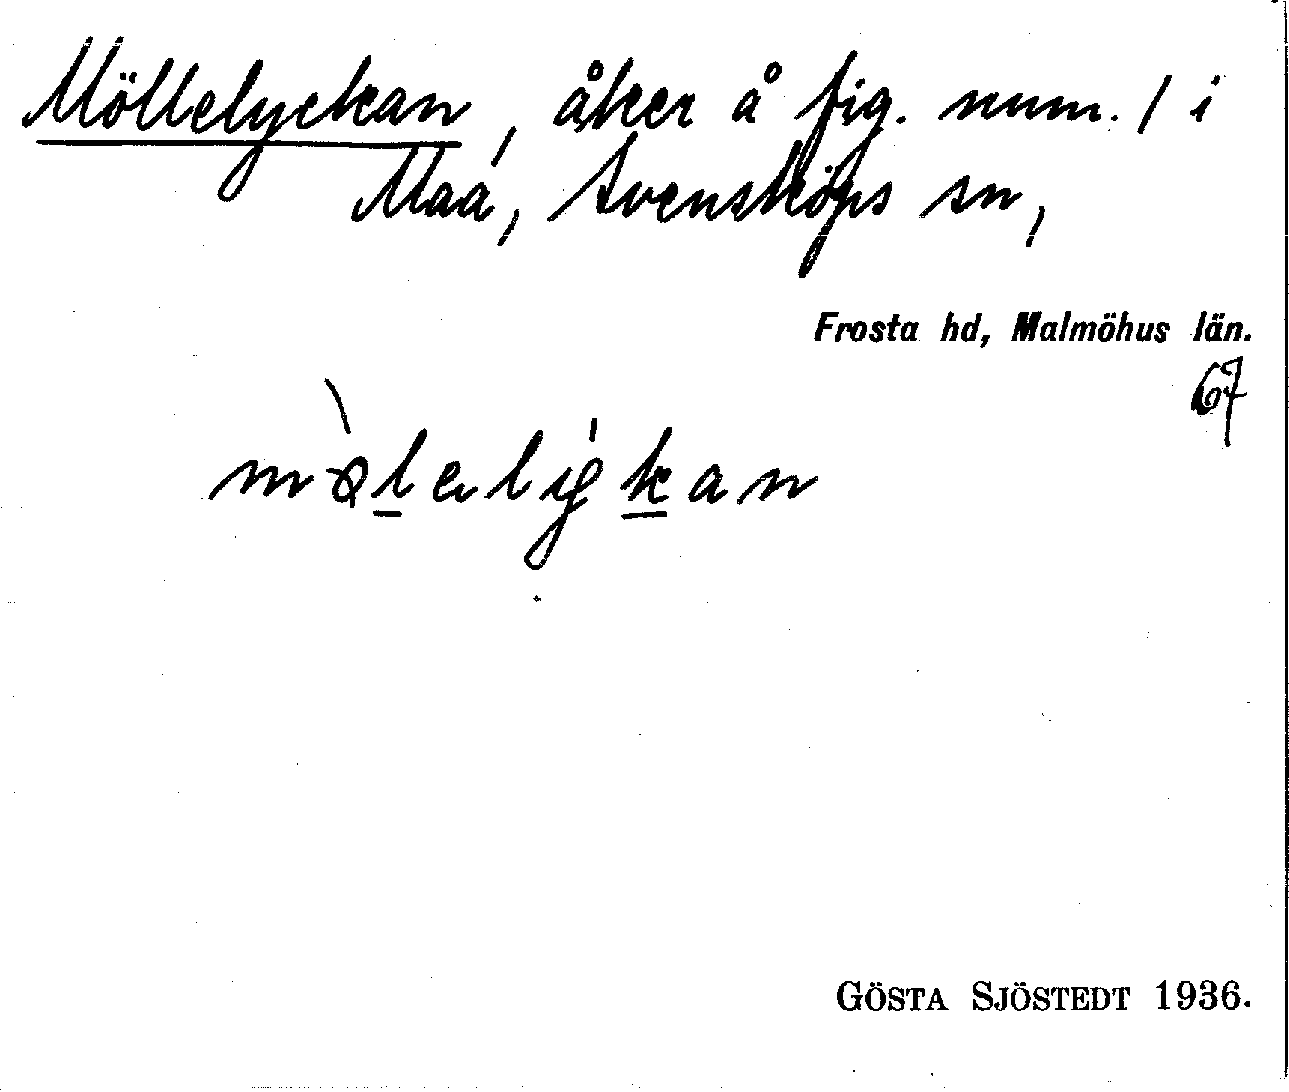 Möllelyckan, åker å fig. num. 1 i
Maa, Svensköps sn,
Frosta hd, Malmöhus län.
67
GÖSTA SJÖSTEDT 1936.